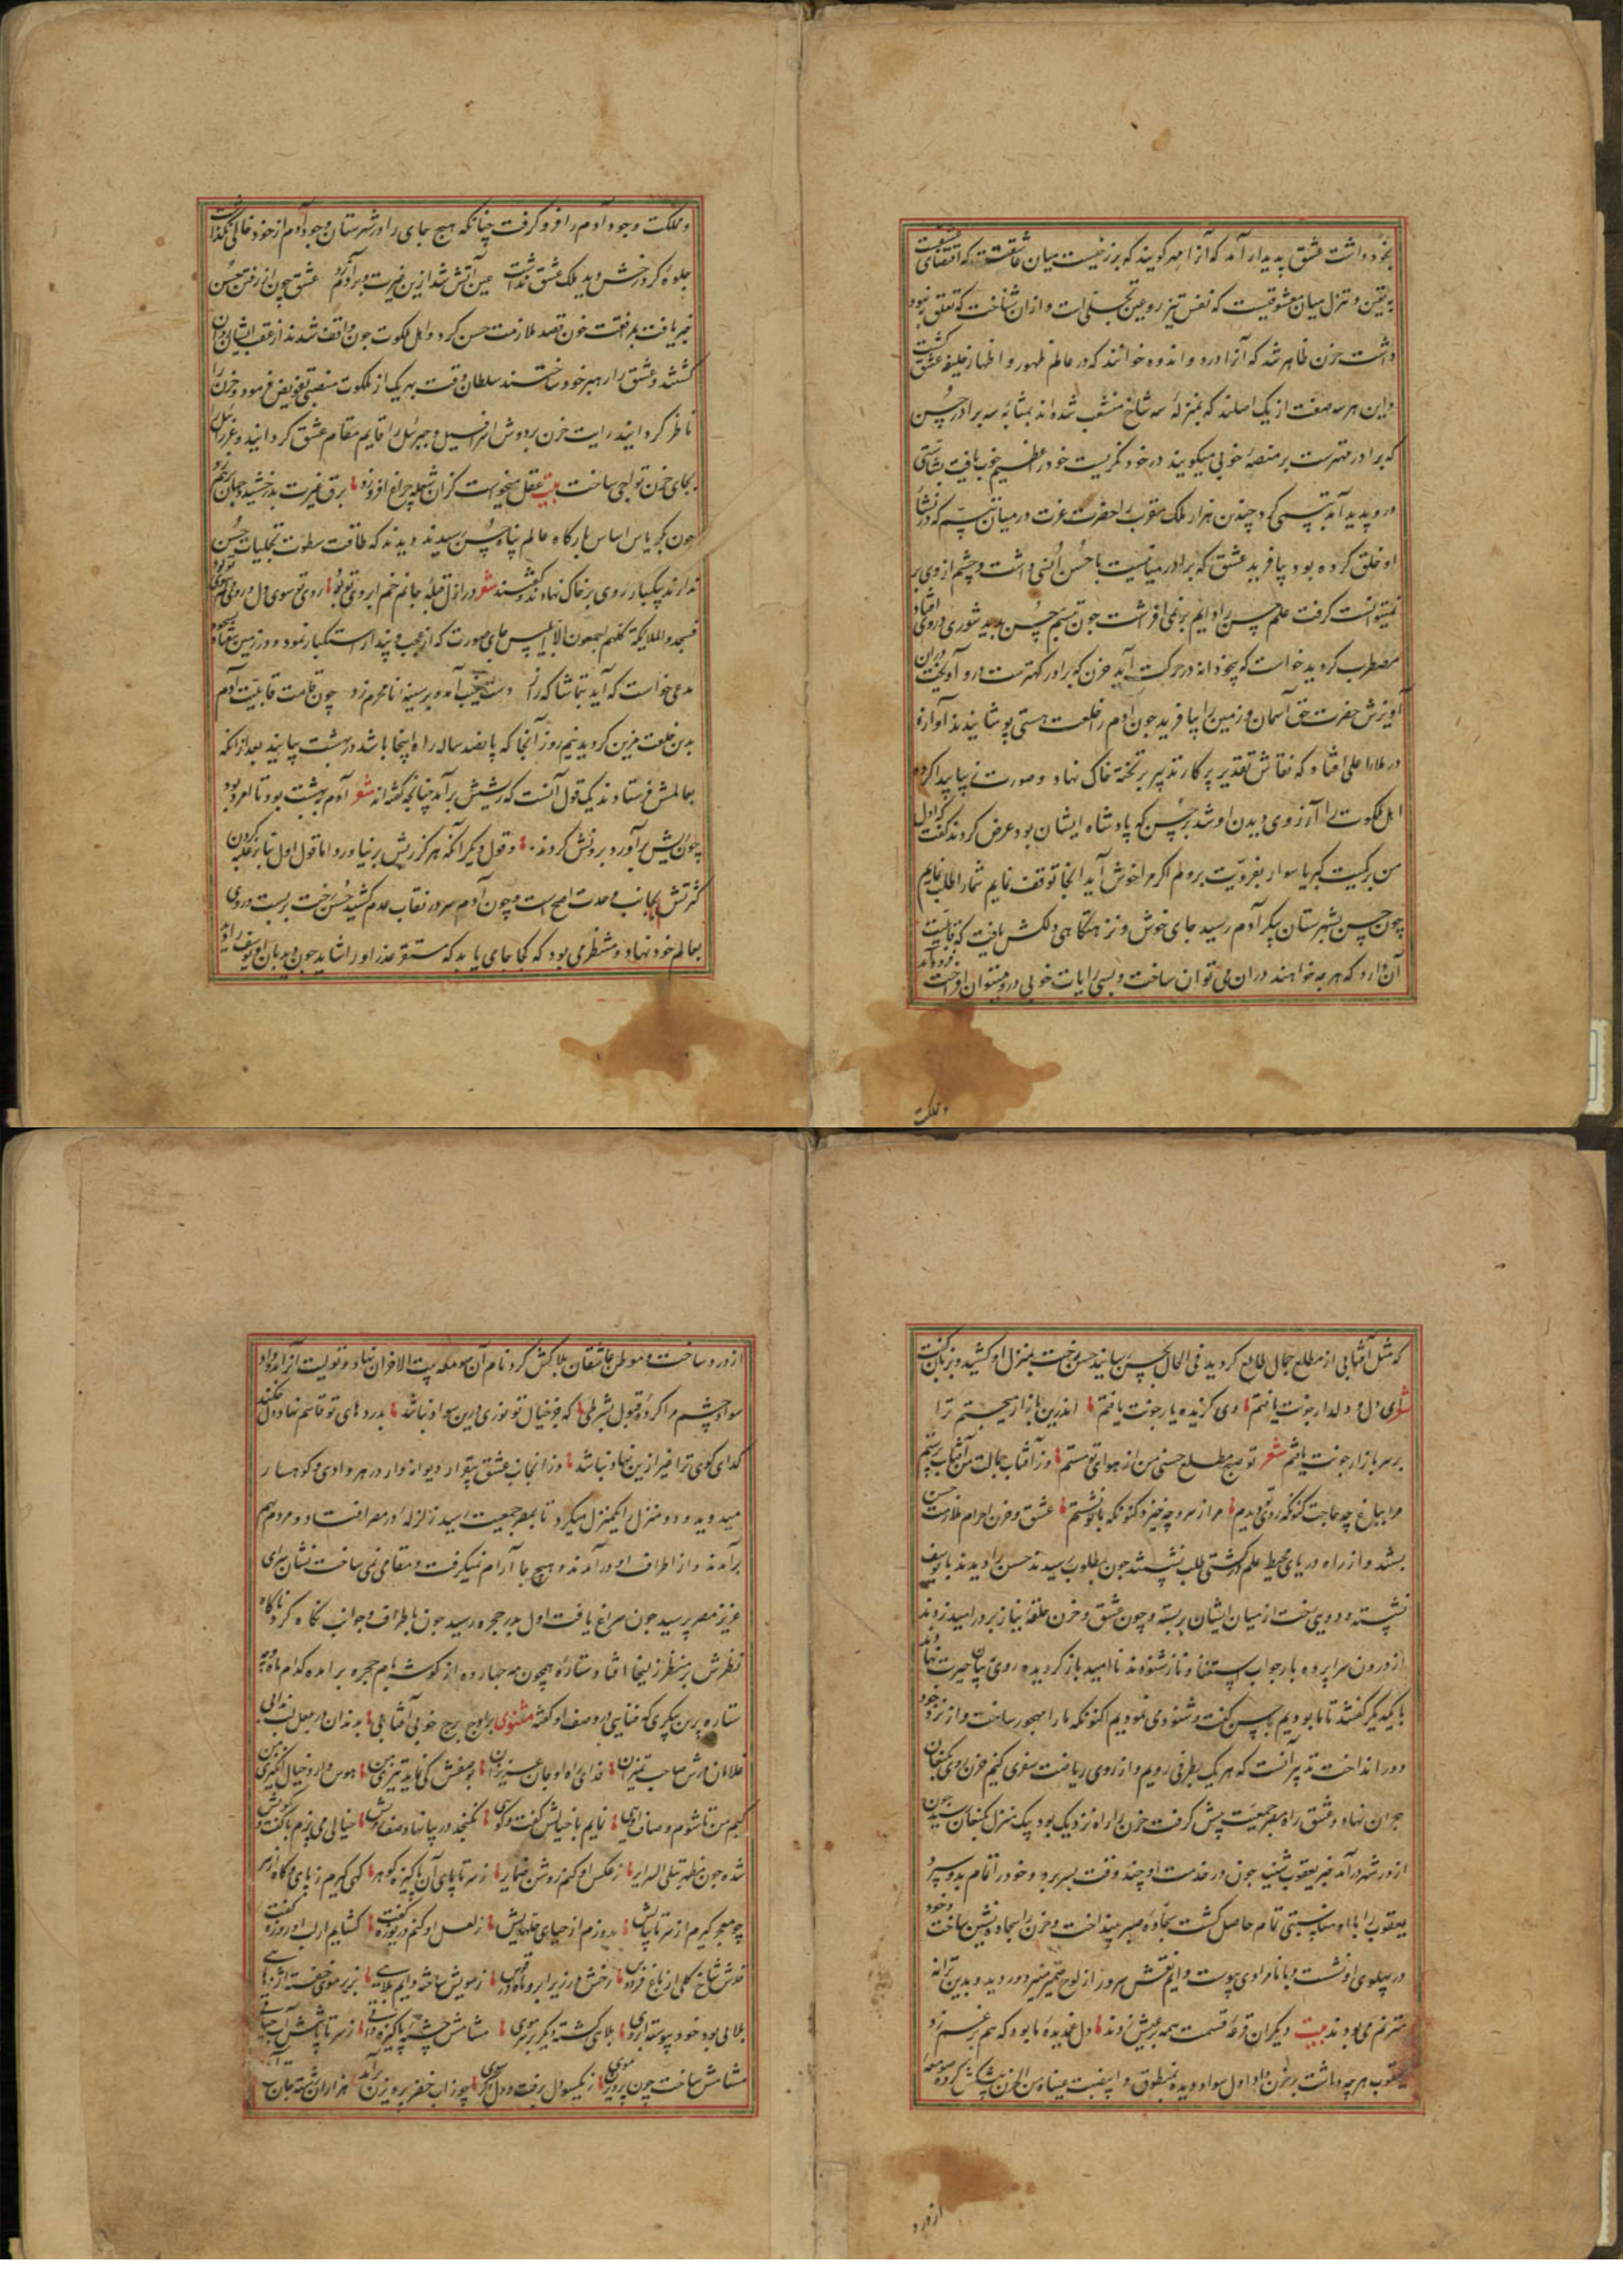 بخود داشت عشق پدیدار آمد که آنرا مهر گویند که برزخیست میان عاشقیت که اقتضای
به تعین و تنزل میان معشوقیت که نفس تیز رو عین تجلی است و ازان شناخت که تعلق نبود
داشت حزن ظاهر شد که آنرا درد و اندوه خوانند که در عالم ظهور و اظهار خلیفه عشق گشت
و این هر سه صفت از یک اصلند که بمنزلهٔ سه شاخ منشعب شده‌اند بمثابهٔ سه برادر حسن
که برادر مهترست بر منصهٔ خوبی میگویند در خود نگریست خود را عظیم خوب یافت بشاشتی
درو پدید آمد تبسمی کرد چندین هزار ملک مقرب را حضرت عزت در میان تبسم
او خلق کرده بود بیافرید عشق که برادر میانیست با حسن انسی داشت و چشم از وی بر
نمیتوانست گرفت علم حسن را دایم بر می افراشت چون تبسم حسن پدید شوری در وی افتاد
مضطرب گردید خواست که بیخودانه در حرکت آید حزن که برادر کهترست درو آویخت در آن
آویزش حضرت حق آسمان و زمین را بیافرید چون آدم را خلعت هستی پوشانیدند آوازه
در ملاء اعلی افتاد که نقاش تقدیر پرکار تدبیر بر تخته خاک نهاد و صورت زیبا پیدا کرده
اهل ملکوت را آرزوی دیدن او شد بر حسن که پادشاه ایشان بود عرض کردند گفت که اول
من بر کمیت کبریا سوار بفرویت بروم اگر مرا خوش آید آنجا توقف نمایم شما را طلب نمایم
چون حسن بشهرستان پیکر آدم رسید جای خوش و نزهتگاهی دلکش یافت که قابلیت
آن دارد که هر چه خواهند دران می توان ساخت و بسی رایات خوبی درو میتوان افراخت فرود آمد
و مملکت
و مملکت وجود آدم را فرو گرفت چنانکه هیچ جای را در شهرستان وجود آدم از خود خالی نگذاشت
جلوهٔ کرد رخش دید ملک عشق نداشت عین آتش شد ازین غیرت و بر آدم زد عشق چون از رفتن حسن
خبر یافت بمرافقت حزن قصد ملازمت حسن کرد و اهل ملکوت چون واقف شدند از عقب ایشان روان
گشتند و عشق را رهبر خود ساختند سلطان وقت بهر یک از ملکوت منصبی تفویض فرمود و حزن را
ناظر گردانید رایت حزن بر دوش اسرافیل و جبرئیل را قایم مقام عشق گردانید و عزرائیل را
بجای حزن تواجی ساخت بیت عقل میخواست کزان شعله چراغ افروزد برق غیرت بدرخشید و جهان برهم زد
چون بکریاس اساس بارگاه عالم پناه حسن رسیدند دیدند که طاقت سطوت تجلیات حسن
ندارند یکبار روی بر خاک نهادند و گفتند شعر در ازل قبلهٔ جانم خم ابروی تو بود روی تو سوی دل و روی دلم سوی تو بود
فسجد و الملایکة کلهم اجمعون الا ابلیس جای صورت که از عجب و پندار استکبار نمود و در زمین نیفتاد
مدعی خواست که آید بتماشاگه راز دست غیب آمد و بر سینهٔ نامحرم زد چون قامت قابلیت آدم
بدین خلعت مزین گردید نیم روز آنجا که پانصد ساله راه اینجا باشد در بهشت بپایید بعد از آنکه
بعالمش فرستادند یک قول آنست که ریشش برآمد چنانچه گفته‌اند شعر آدم به بهشت بود تا امرد بود
چون ریش برآورد برونش کردند و قول دیگر آنکه هرگز ریش بر نیاورد اما قول اول بنابر غلبه کردن
کثرتش بجانب وحدت اصح است و چون آدم سر در نقاب عدم کشید حسن رخت بربست و روی
بعالم خود نهاد و منتظر می بود که کجا جای یابد که مستقر عز او را شاید چون دید بان او یوسف را دید
که مثل آفتابی از مطلع جمال طالع گردید فی الحال بحسن رسانید حسن رخت بمنزل او کشید و بزبان گفت
شعر ای دل و دلدار چونت یافتم وی گزیده یار چونت یافتم اندرین بازار میجستم ترا
بر سر بازار چونت یافتم شعر تو صبح مطلع حسنی من از هوای تو مستم وز آفتاب جمالت من آفتاب پرستم
مرا بباغ چه حاجت کنونکه روی تو دیدم مرا ز سرو چه خیزد کنونکه با تو نشستم عشق و حزن احرام ملازمت حسن
بستند و از راه دریای محیط علم در کشتی طلب نشستند چون بمطلوب رسیدند حسن را دیدند با یوسف
نشسته و دویی رخت از میان ایشان بربسته و چون عشق و حزن حلقهٔ نیاز بر در امید زدند
از درون سراپرده بار جواب استغنا و ناز شنودند نا امید باز گردیده روی به بیابان حیرت نهادند
با یکدیگر گفتند تا ما بودیم با حسن گفت و شنودی نمودیم اکنون که ما را مهجور ساخت و از نزد خود
دور انداخت تدبیر آنست که هر یک بطرفی رویم و از روی ریاضت سفری کنیم حزن روی بکنعان
هجران نهاد و عشق راه مصر جمعیت پیش گرفت حزن را راه نزدیک بود بیک منزل بکنعان رسید چون
از در شهر درآمد خبر یعقوب شنید چون در خدمت او چند وقت بسر برد و خود را تمام بدو سپرد
یعقوب را با او مناسبتی تمام حاصل گشت سجاده صبر بینداخت و حزن را سجاده نشین ساخت و خود
در پهلوی او نشست و با نامرادی پیوست دایم نقش سرور از لوح ضمیر منیر دور دید و بدین ترانه
مترنم می بودند بیت دیگران قرعه قسمت همه بر عیش زدند دل غمدیدهٔ ما بود که هم بر غم زد
یعقوب هر چه داشت بر حزن داد اول سواد دیده بمنطوق و ابیضت عیناه من الحزن پیشکش کرده صومعهٔ
از درد
از درد ساخت و موطن عاشقان بلاکش کرد نام آن صومعه بیت الاحزان نهاد و تولیت آنرا بدو داد
سواد چشم مرا کردهٔ قبول بشرطی که جز خیال تو نوری درین سواد نباشد بدردهای تو قاسم نهاده دل
گدای کوی ترا غیر ازین نهاد نباشد وزانجانب عشق بیقرار دیوانه وار در هر وادی و کوهسار
میدوید و دو منزل را یکمنزل میکرد تا بمصر جمعیت رسید زلزله در مصر افتاد و مردم بهم
برآمدند و از اطراف او درآمدند و هیچ جا آرام نمیگرفت و مقامی نمی ساخت نشان سرای
عزیز مصر پرسید چون سراغ یافت اول بدر حجره رسید چون باطراف و جوانب نگاه کرد ناگاه
نظرش بر منظر زلیخا افتاد ستارهٔ همچون مه چهارده از گوشهٔ بام حجره برآمده کدام ماه و چه
ستاره پرن پیکری که فنایی در وصف او گفته مثنوی بر اوج برج خوبی آفتابی
غلامان درش صاحب تمیزان فدای راه او جان عزیزان
کیم من تا شوم وصاف رویی نمایم با خیالش گفت و گوی نگنجد در بیانها وصف رویش خیالی می پزم با گفت و گویش
شده چون مظهر تبلی السرایر ز عکس او کنم روشن ضمایر ز سر تا پای آن پاکیزه گوهر گهی گیرم ز پای و گاه از سر
چو معجر گیرم از سر تا بپایش بدوزم از حیای حلهایش ز لعل او کنم دریوزه گفت
قدش شاخ گلی از باغ فردوس رخش در زیر ابرو ماه در قوس ز مویش ساخته دایم بلایی بزیر هر موی خفته اژدهایی
بلایی بود خود پیوسته ابروی بلای گشته دیگر بر سر موی مشامش چشمهٔ پاکیزه ز سر تا پاش آب
مشامش ساخت چون پرویز